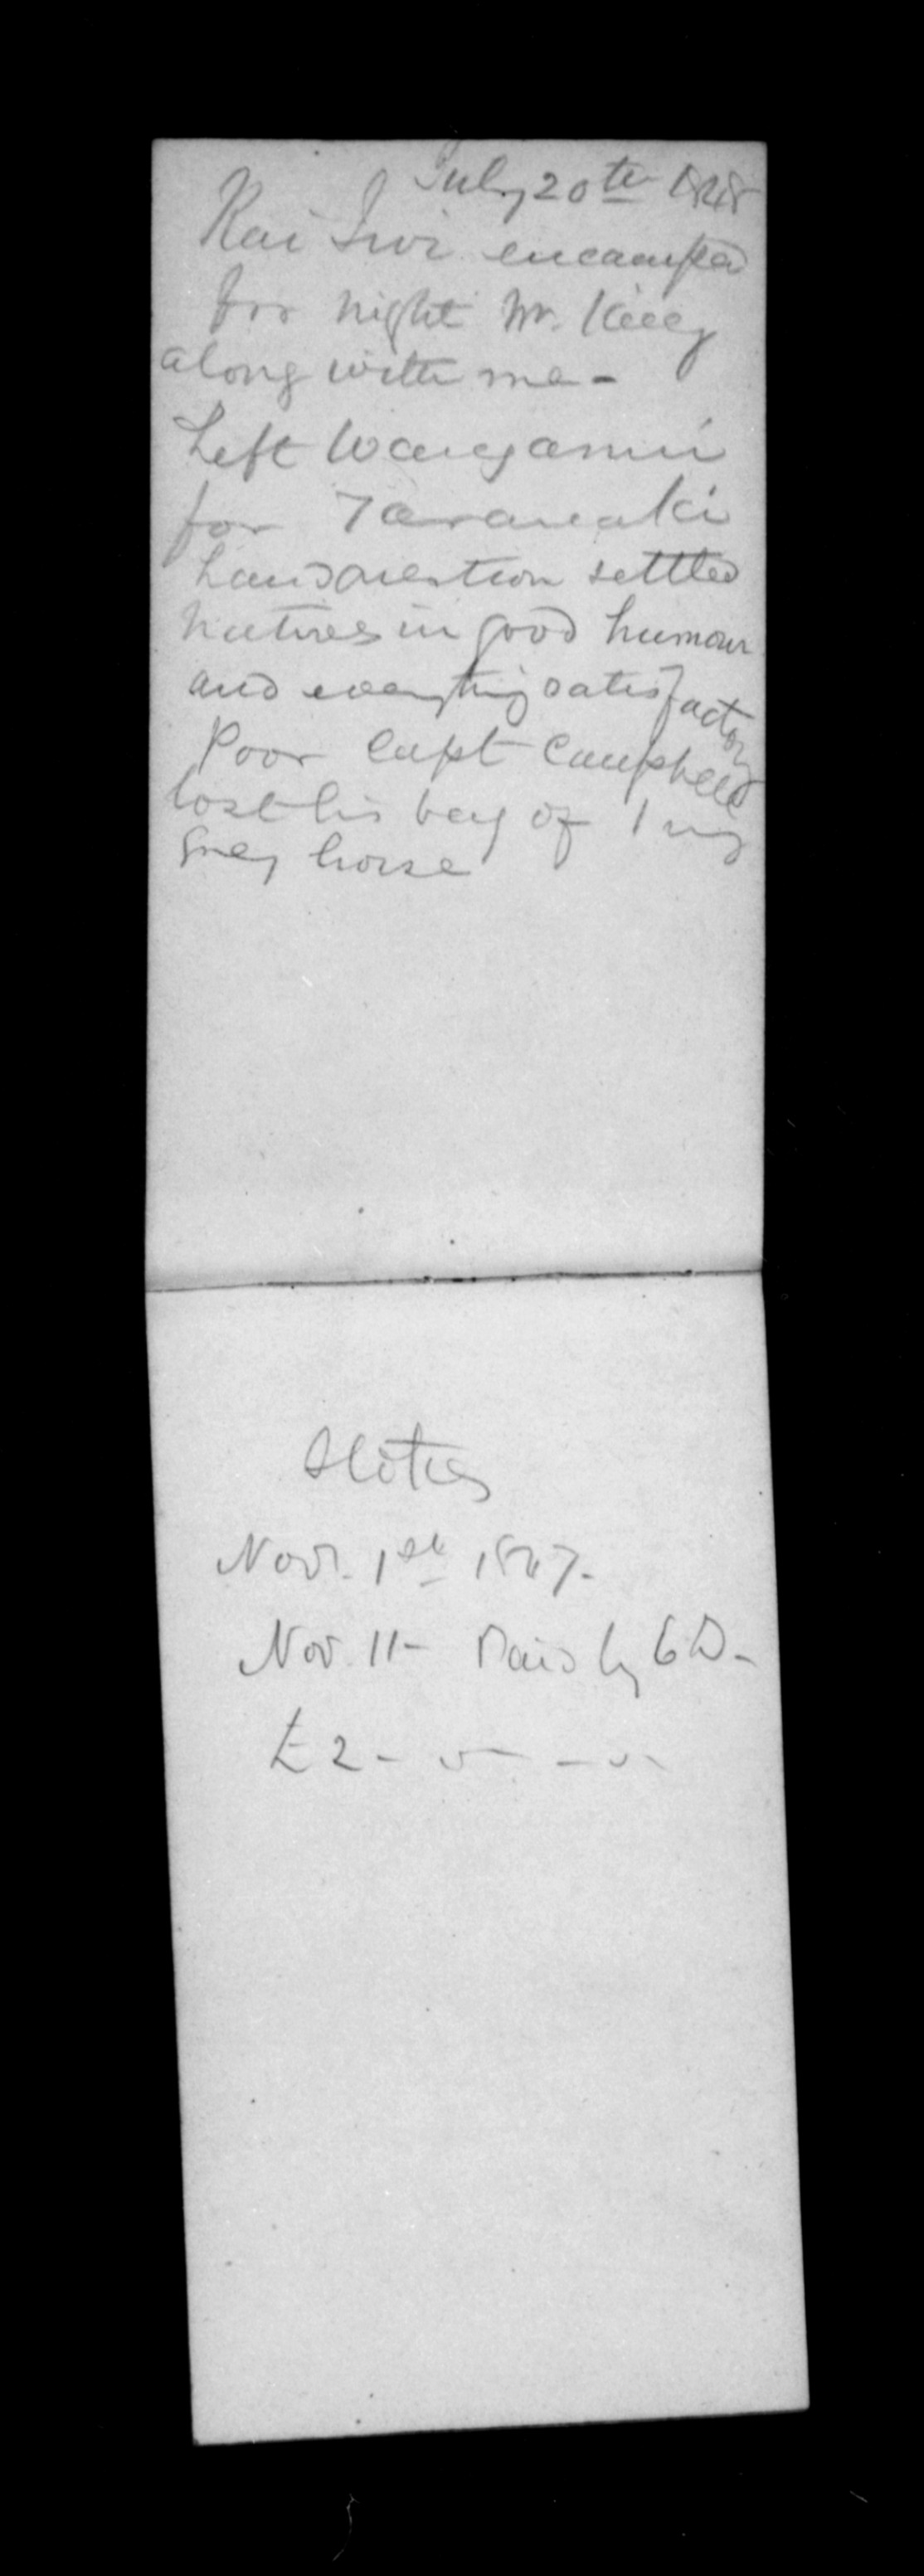 July 20th 1848
Kai Iwi encamped
for night Mr. Kelly
along with me -
Left Wanganui
for Taranaki
Land question settled
Natives in good humour
and everything satisfactory
Poor Capt Campbell
lost his bay of my
grey horse
Nov. 1st 1847 -
Nov. 11 - Paid by
£2 - - - -